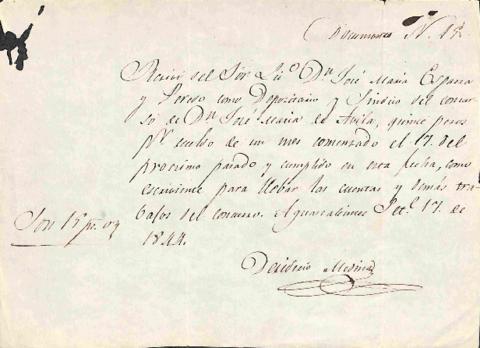 Documento N. 19.
Recivi del Sor. Lic.º Dn. José Maria Esparza
y Peredo como Depositario y Sindico del concur-
so de Dn. José Maria de Avila, quince pesos
pr. sueldo de un mes comenzado el 17. del
procsimo pasado y cumplido en esta fecha, como
escriviente para llebar las cuentas y demás tra-
bajos del concurso. Aguascalientes 17. de
1844.
Son 15 ps.
Desiderio Medina